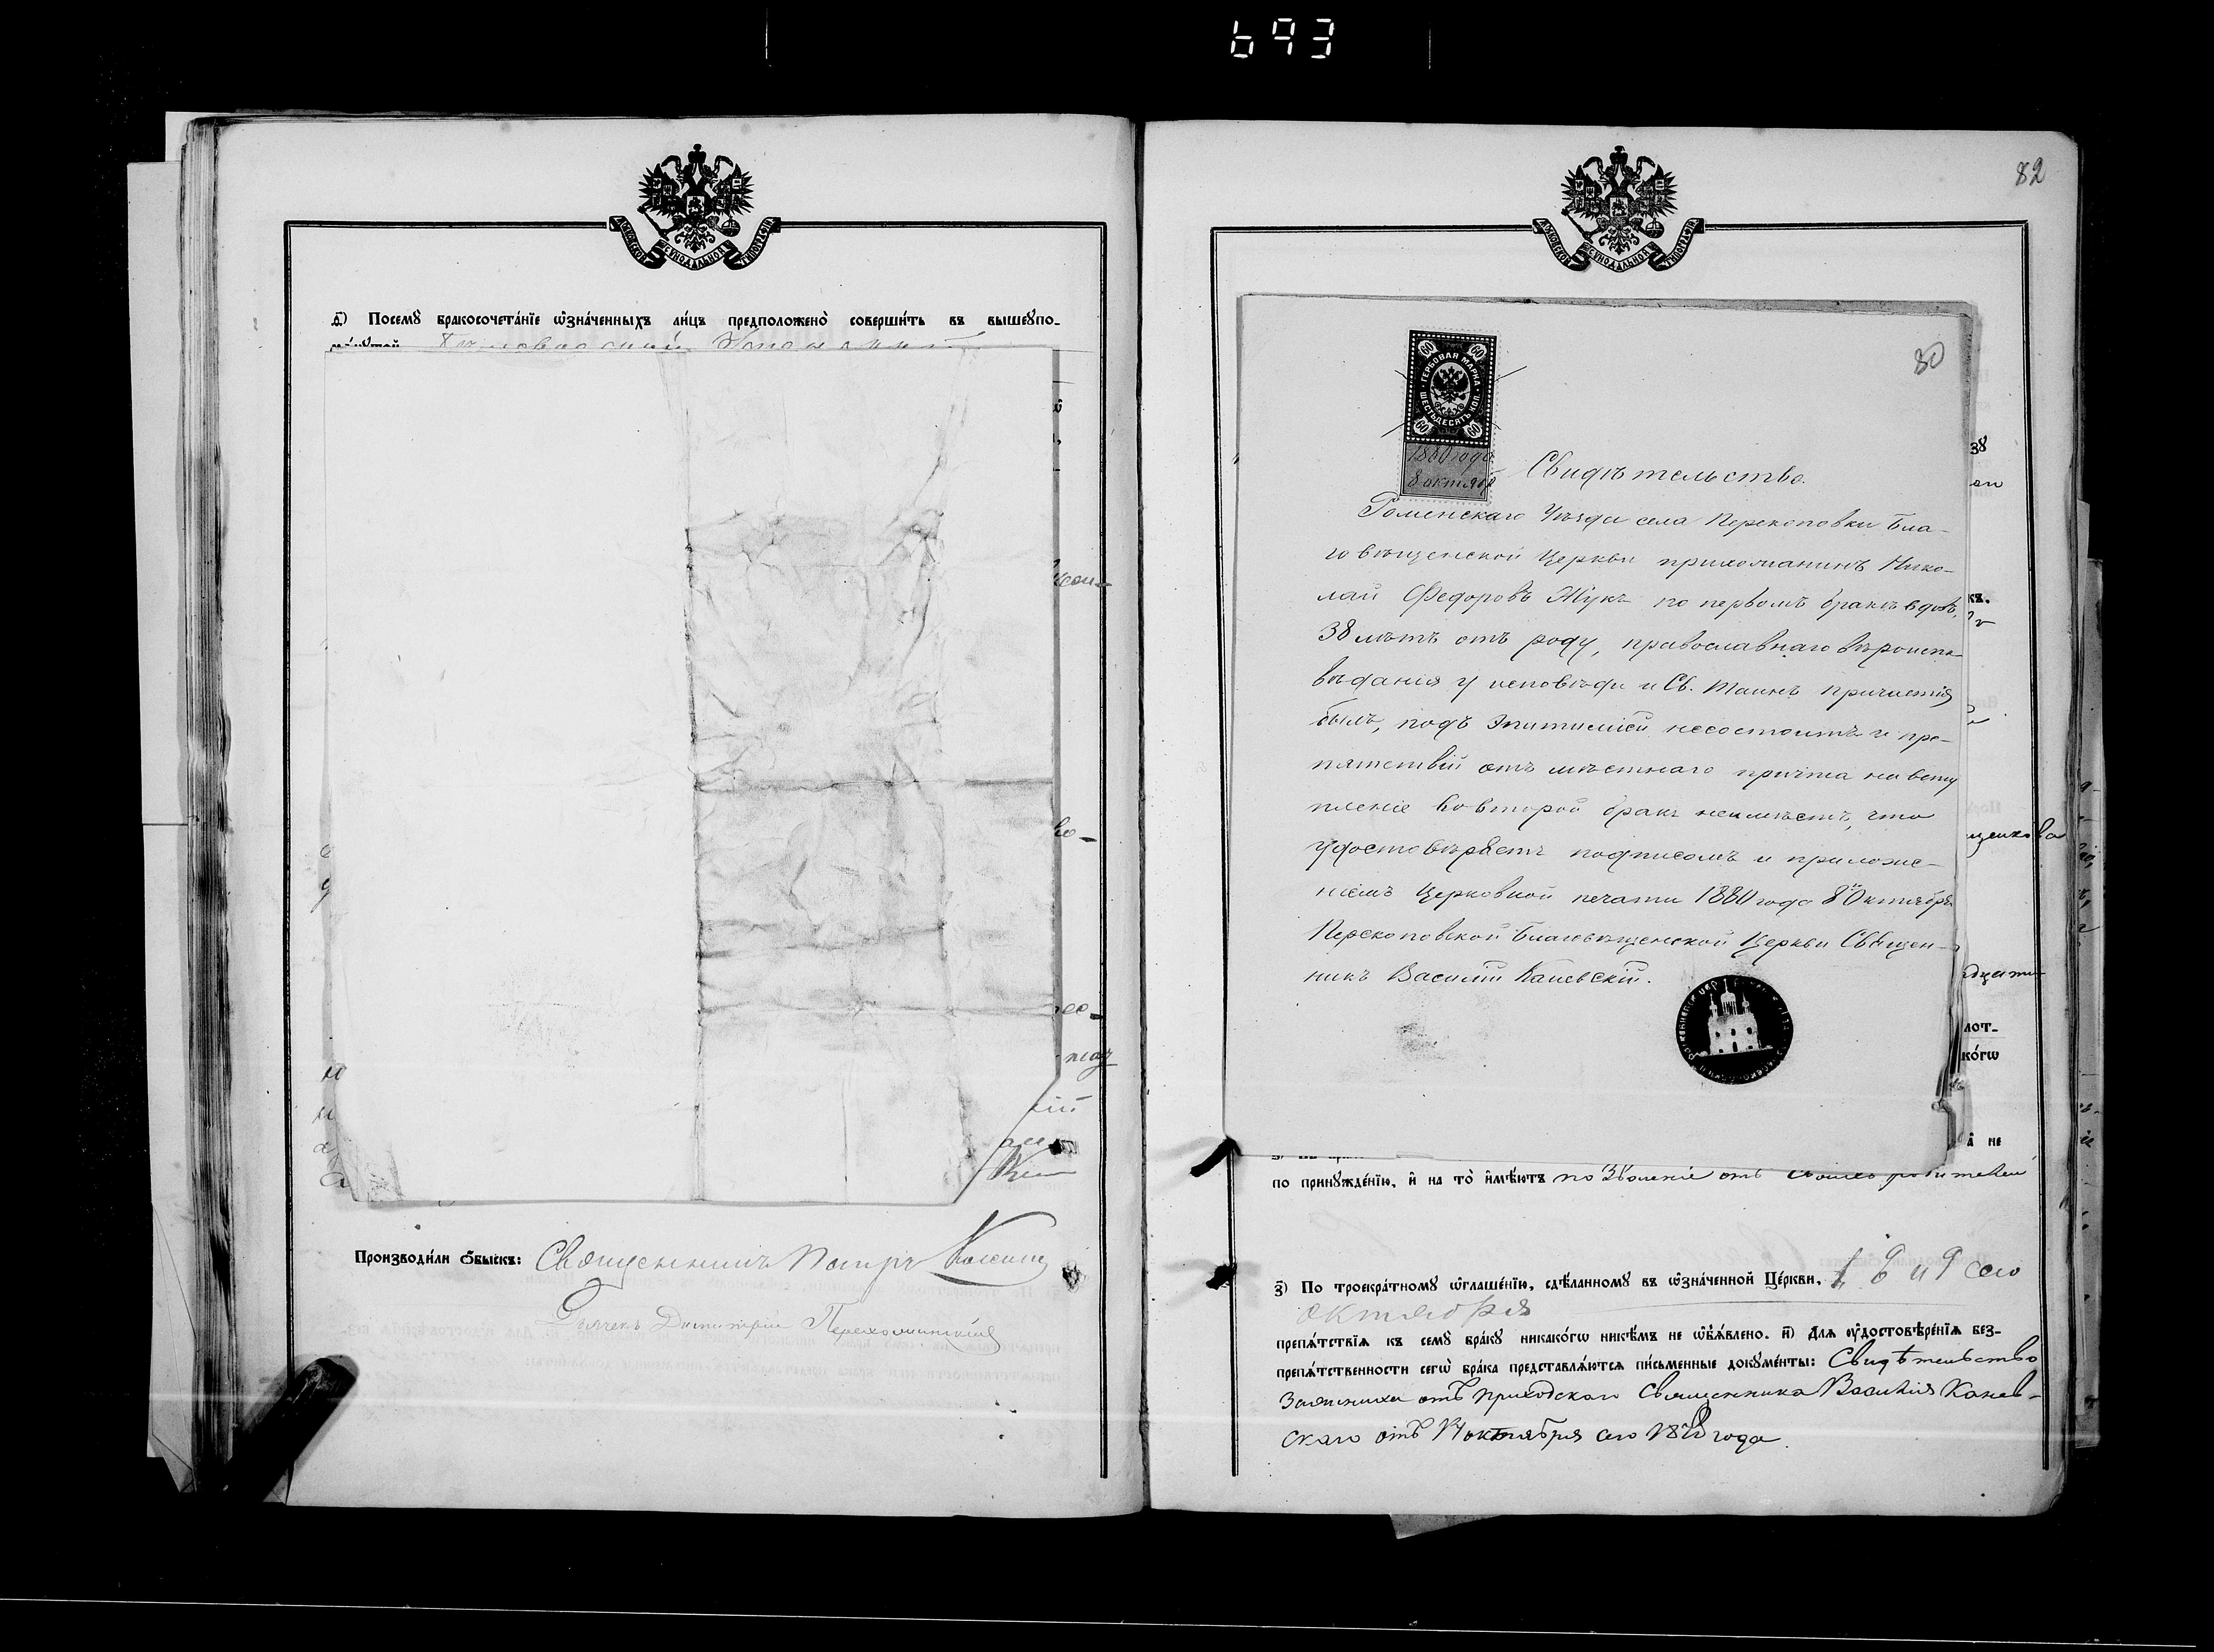 693
МОСКОВСКОЙ СѴНОДАЛЬНОЙ ТИПОГРАФІИ
Посемꙋ бракосочета́нїе ѡ҆зна́ченныхъ ли́цъ предположено̀ соверши́ть въ вышеꙋпо-
Производи́ли ѻ҆́быскъ: Священникъ Петръ
Дьячекъ Димитрій
82
МОСКОВСКОЙ СѴНОДАЛЬНОЙ ТИПОГРАФІИ
80
60 60
ГЕРБОВАЯ МАРКА
ШЕСТЬДЕСЯТЪ КОП.
60 60
1880 года
8 октяб
Свидѣтельство.
Роменскаго Уѣзда села Перекоповки Бла-
говѣщенской Церкви прихожанинъ Нико-
лай Федоровъ Жукъ по первомъ бракѣ вдов,
38 лѣтъ отъ роду, православнаго вѣроиспо-
вѣданія у исповѣди и Св. Таинъ причастія
былъ, подъ эпитиміей несостоитъ и пре-
пятствій отъ мѣстнаго причта на всту
пленіе во второй бракъ неимѣетъ, что
удостовѣряетъ подписомъ и приложе-
ніемъ Церковной печати 1880 года 8го Октября
Перекоповской Благовѣщенской Церкви Священ-
никъ Василій Каневскій.
по принꙋжде́нїю, и҆ на то̀ и҆мѣ́ютъ позволеніе отъ своихъ родителей
з҃) По троекра́тномꙋ ѡ҆глаше́нїю, сдѣ́ланномꙋ въ ѡ҆зна́ченной Це́ркви, 1 6 и 9 сего
октября
препѧ́тствїѧ къ семꙋ̀ бра́кꙋ никако́гѡ никѣ́мъ не ѡ҆б̾ѧ́влено. и҃) Длѧ ᲂу҆достовѣре́нїѧ без-
препѧ́тственности сегѡ̀ бра́ка представлѧ́ютсѧ пи́сьменные докꙋме́нты: Свидѣтельство
Жениха отъ приходскаго Священника Василія Канев-
скаго отъ 14 октября сего 1880 года.